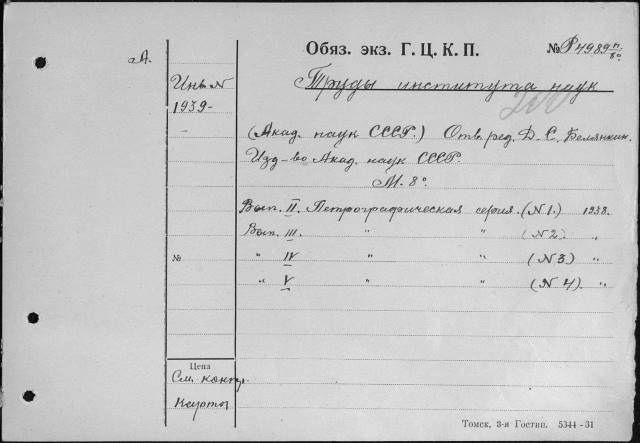 Обяз. экз. Г. Ц. К. П.
№ Р4989 п/8°
А.
Инв. №
1939-
Труды института наук
(Акад. наук СССР.) Отв. ред. Д. С. Белянкин.
Изд-во Акад. наук СССР.
М. 8°
Вып. II. Петрографическая серия. (N 1.) 1938.
Вып. III. " " (N 2.) "
" IV " " (N 3.) "
№
" V " " (N 4). "
Цена
См. контр.
карты
Томск, 3-я Гостип. 5344-31